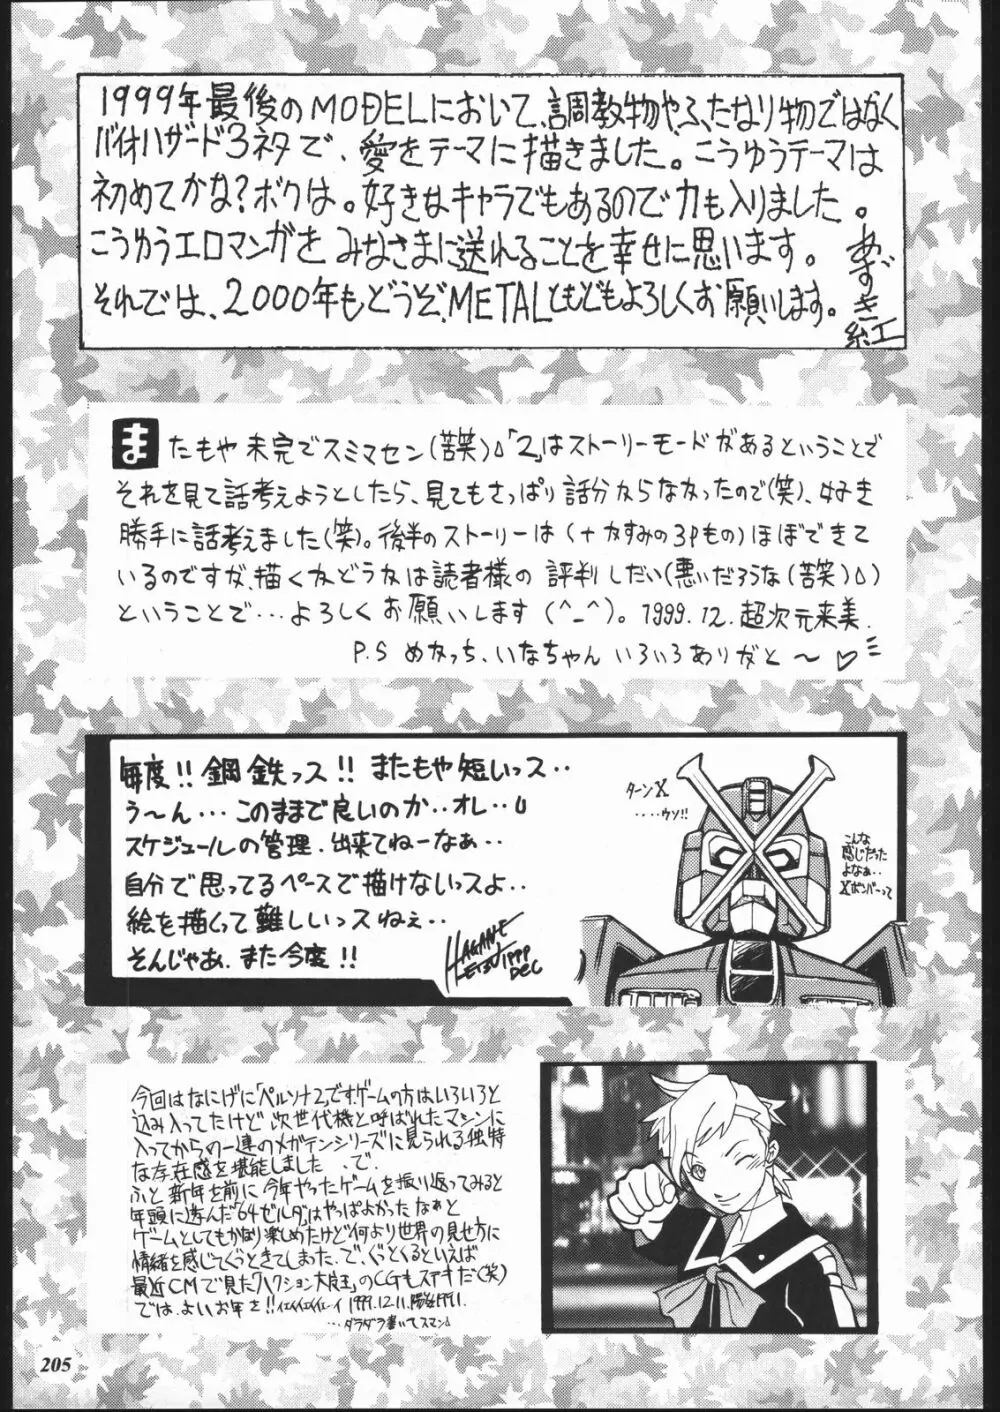 1999年最後のMODELにおいて、調教物や、ふたなり物ではなく
バイオハザード3ネタで、愛をテーマに描きました。こうゆうテーマは
初めてかな?ボクは。好きなキャラでもあるので力も入りました。
こうゆうエロマンガをみなさまに送れることを幸せに思います。
それでは、2000年もどうぞ、METALともどもよろしくお願いします。
あずき紅
またもや未完でスミマセン(苦笑)「2」はストーリーモードがあるということで
それを見て話考えようとしたら、見てもさっぱり話分からなかったので(笑)、好き
勝手に話考えました(笑)。後半のストーリーは(+かすみの3Pもの)ほぼできて
いるのですが、描くかどうかは読者様の評判しだい(悪いだろうな(苦笑))
ということで…よろしくお願いします(^_^)。1999.12.超次元来美.
P.S めなっち、いなちゃん いろいろありがと〜♡
毎度!!鋼鉄っス!!またもや短いっス‥
う〜ん‥‥このままで良いのか‥オレ‥
スケジュールの管理、出来てねーなぁ‥
自分で思ってるペースで描けないっスよ‥
絵を描くって難しいっスねぇ‥
そんじゃあ、また今度!!
HAGANE
TETSU 1999
DEC
ターンX
‥‥ウソ!!
こんな
感じだった
よなぁ‥
Xボンバーって
今回はなにげに「ペルソナ2」です。ゲームの方はいろいろと
込み入ってたけど次世代機と呼ばれたマシンに
入ってからの一連のメガテンシリーズに見られる独特
な存在感を堪能しました。で、
ふと新年を前に今年やったゲームを振り返ってみると
年頭に遊んだ「64ゼルダ」はやっぱよかったなぁと
ゲームとしてもかなり楽しめたけど何より世界の見せ方に
情緒を感じてぐっときてしまった。で、ぐっとくるといえば
最近CMで見た「ハクション大魔王」のCGもステキだ(笑)
では、よいお年を!!イエイイエイイェーイ 1999.12.11.
…ダラダラ書いてスマン
205